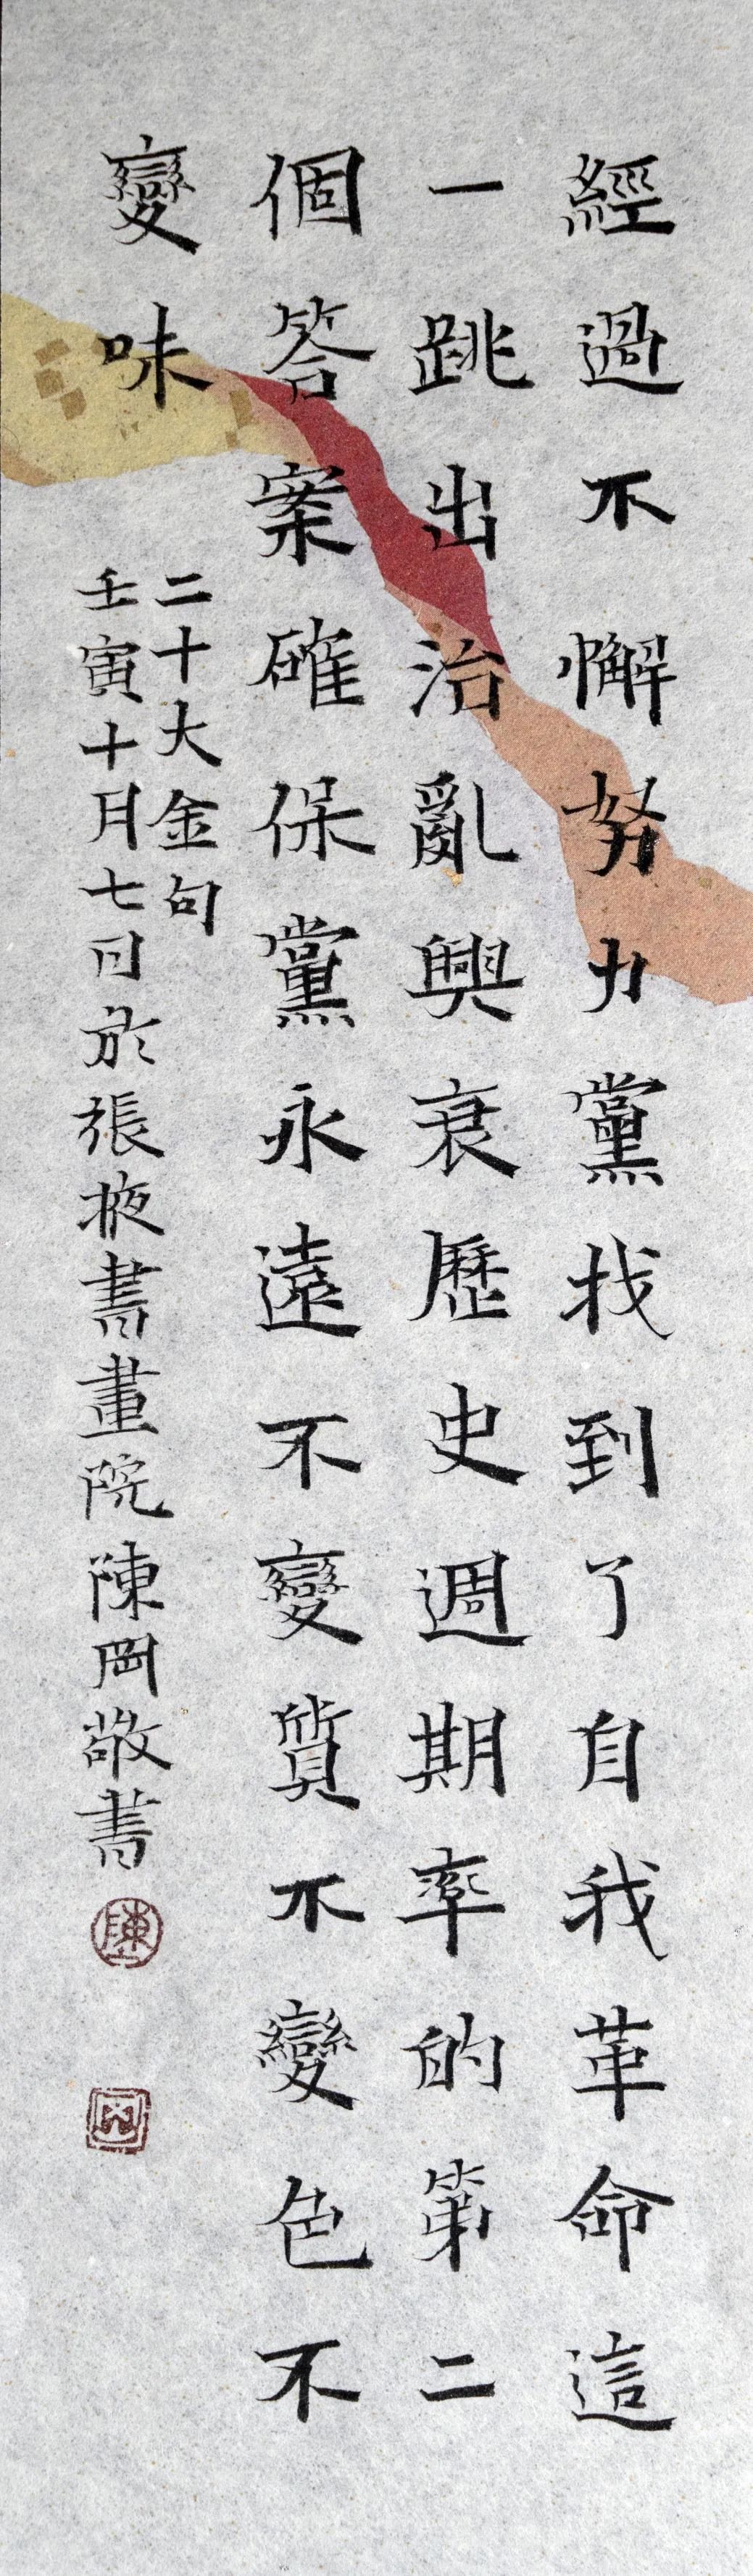 經過不懈努力黨找到了自我革命這
一跳出治亂興衰歷史週期率的第二
個答案確保黨永遠不變質不變色不
變味
二十大金句
壬寅十月七日於張掖書畫院陳岡敬書
陳